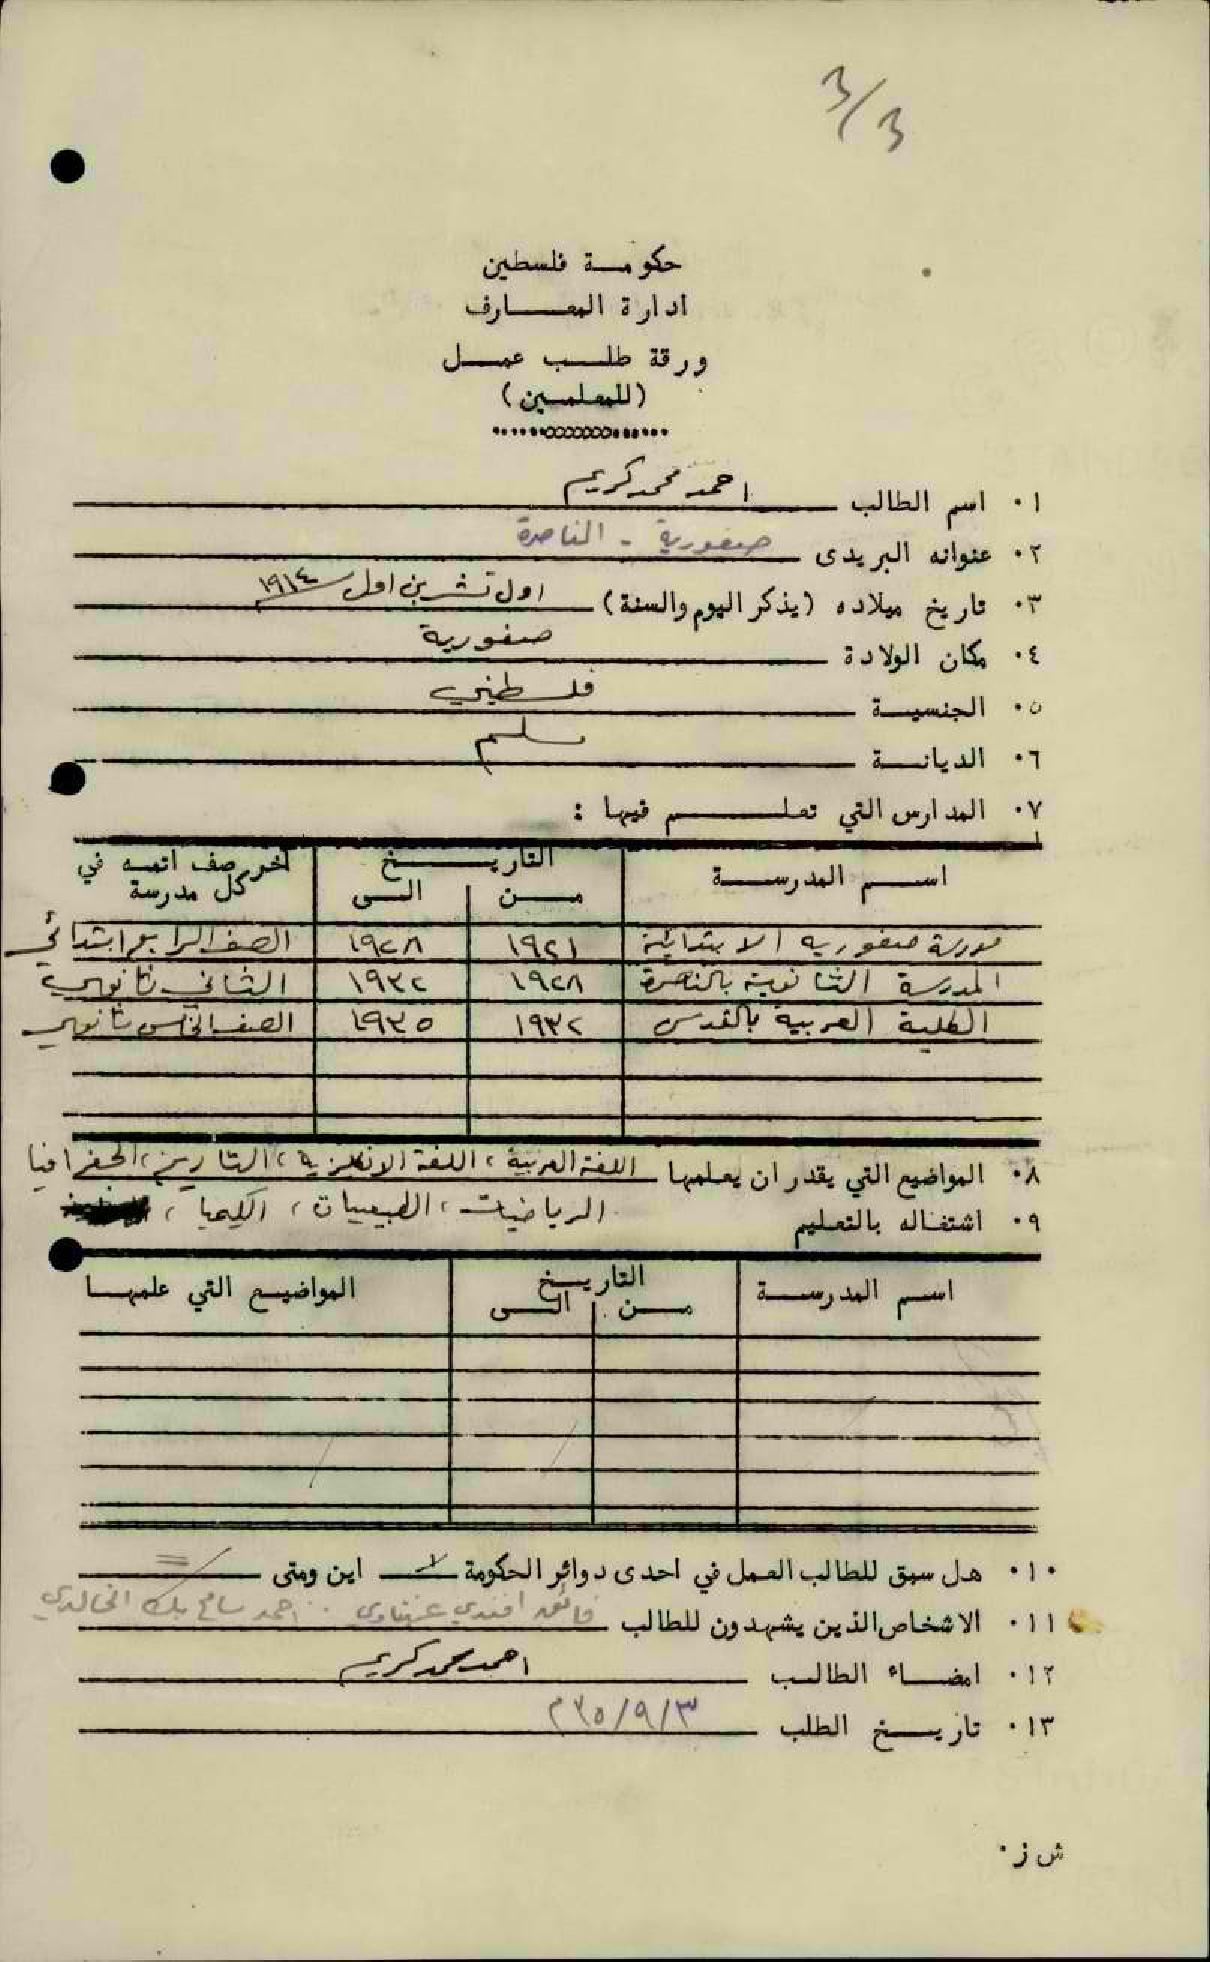 3/3
حكومة فلسطين
ادارة المعارف
ورقة طلب عمل
(للمعلمين)
٠١ اسم الطالب احمد محمد كريم
٠٢ عنوانه البريدى صفورية - الناصرة
٠٣ تاريخ ميلاده (يذكر اليوم والسنة) اول تشرين اول ١٩١٤
٠٤ مكان الولادة صفورية
٠٥ الجنسية فلسطيني
٠٦ الديانة مسلم
٠٧ المدارس التي تعلم فيها :
اسم المدرسة التاريخ من الى آخر صف اتمه في كل مدرسة
مدرسة صفوريه الابتدائية ١٩٢١ ١٩٢٨ الصف الرابع ابتدائي
المدرسة الثانوية بالناصرة ١٩٢٨ ١٩٣٢ الثاني ثانوي
الكلية العربية بالقدس ١٩٣٢ ١٩٣٥ الصف الخامس ثانوي
٠٨ المواضيع التي يقدر ان يعلمها اللغة العربية، اللغة الانكليزية، التاريخ، الجغرافيا
الرياضيات، الطبيعيات، الكيميا،
٠٩ اشتغاله بالتعليم
اسم المدرسة التاريخ من الى المواضيع التي علمها
٠١٠ هل سبق للطالب العمل في احدى دوائر الحكومة لا اين ومتى
٠١١ الاشخاص الذين يشهدون للطالب فائق افندي عنبتاوى . احمد سامح بك الخالدي
٠١٢ امضاء الطالب احمد محمد كريم
٠١٣ تاريخ الطلب ٣/٩/٩٣٥
ش ز٠